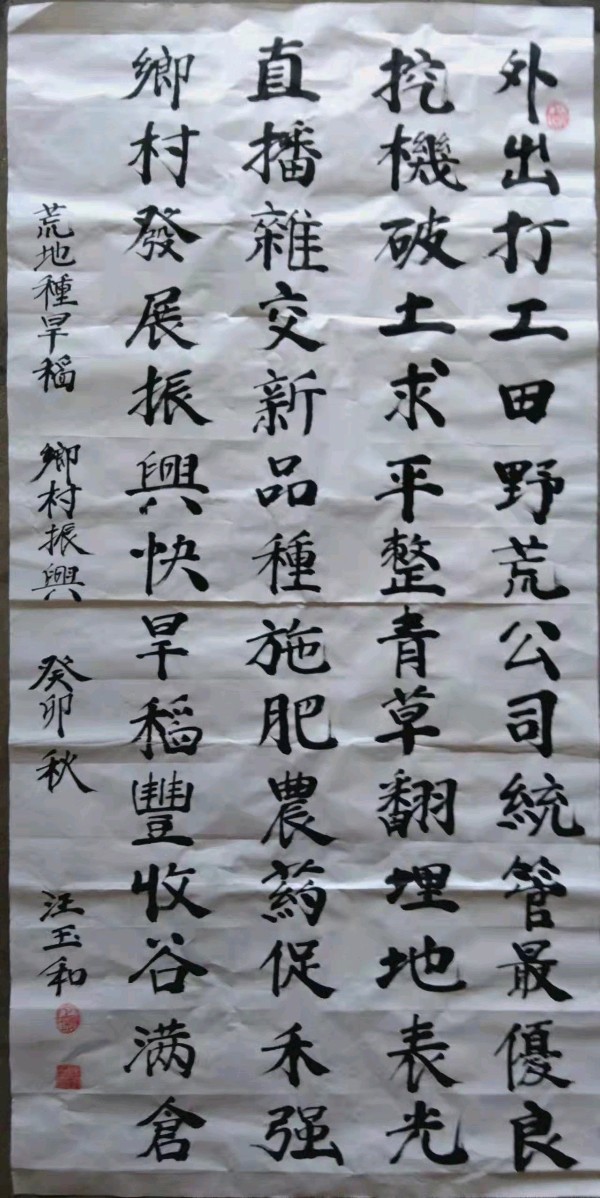 外出打工田野荒公司統管最優良
挖機破土求平整青草翻埋地表光
直播雜交新品種施肥農药促禾强
鄉村發展振興快旱稻豐收谷满倉
荒地種旱稻 鄉村振興 癸卯秋 汪玉和